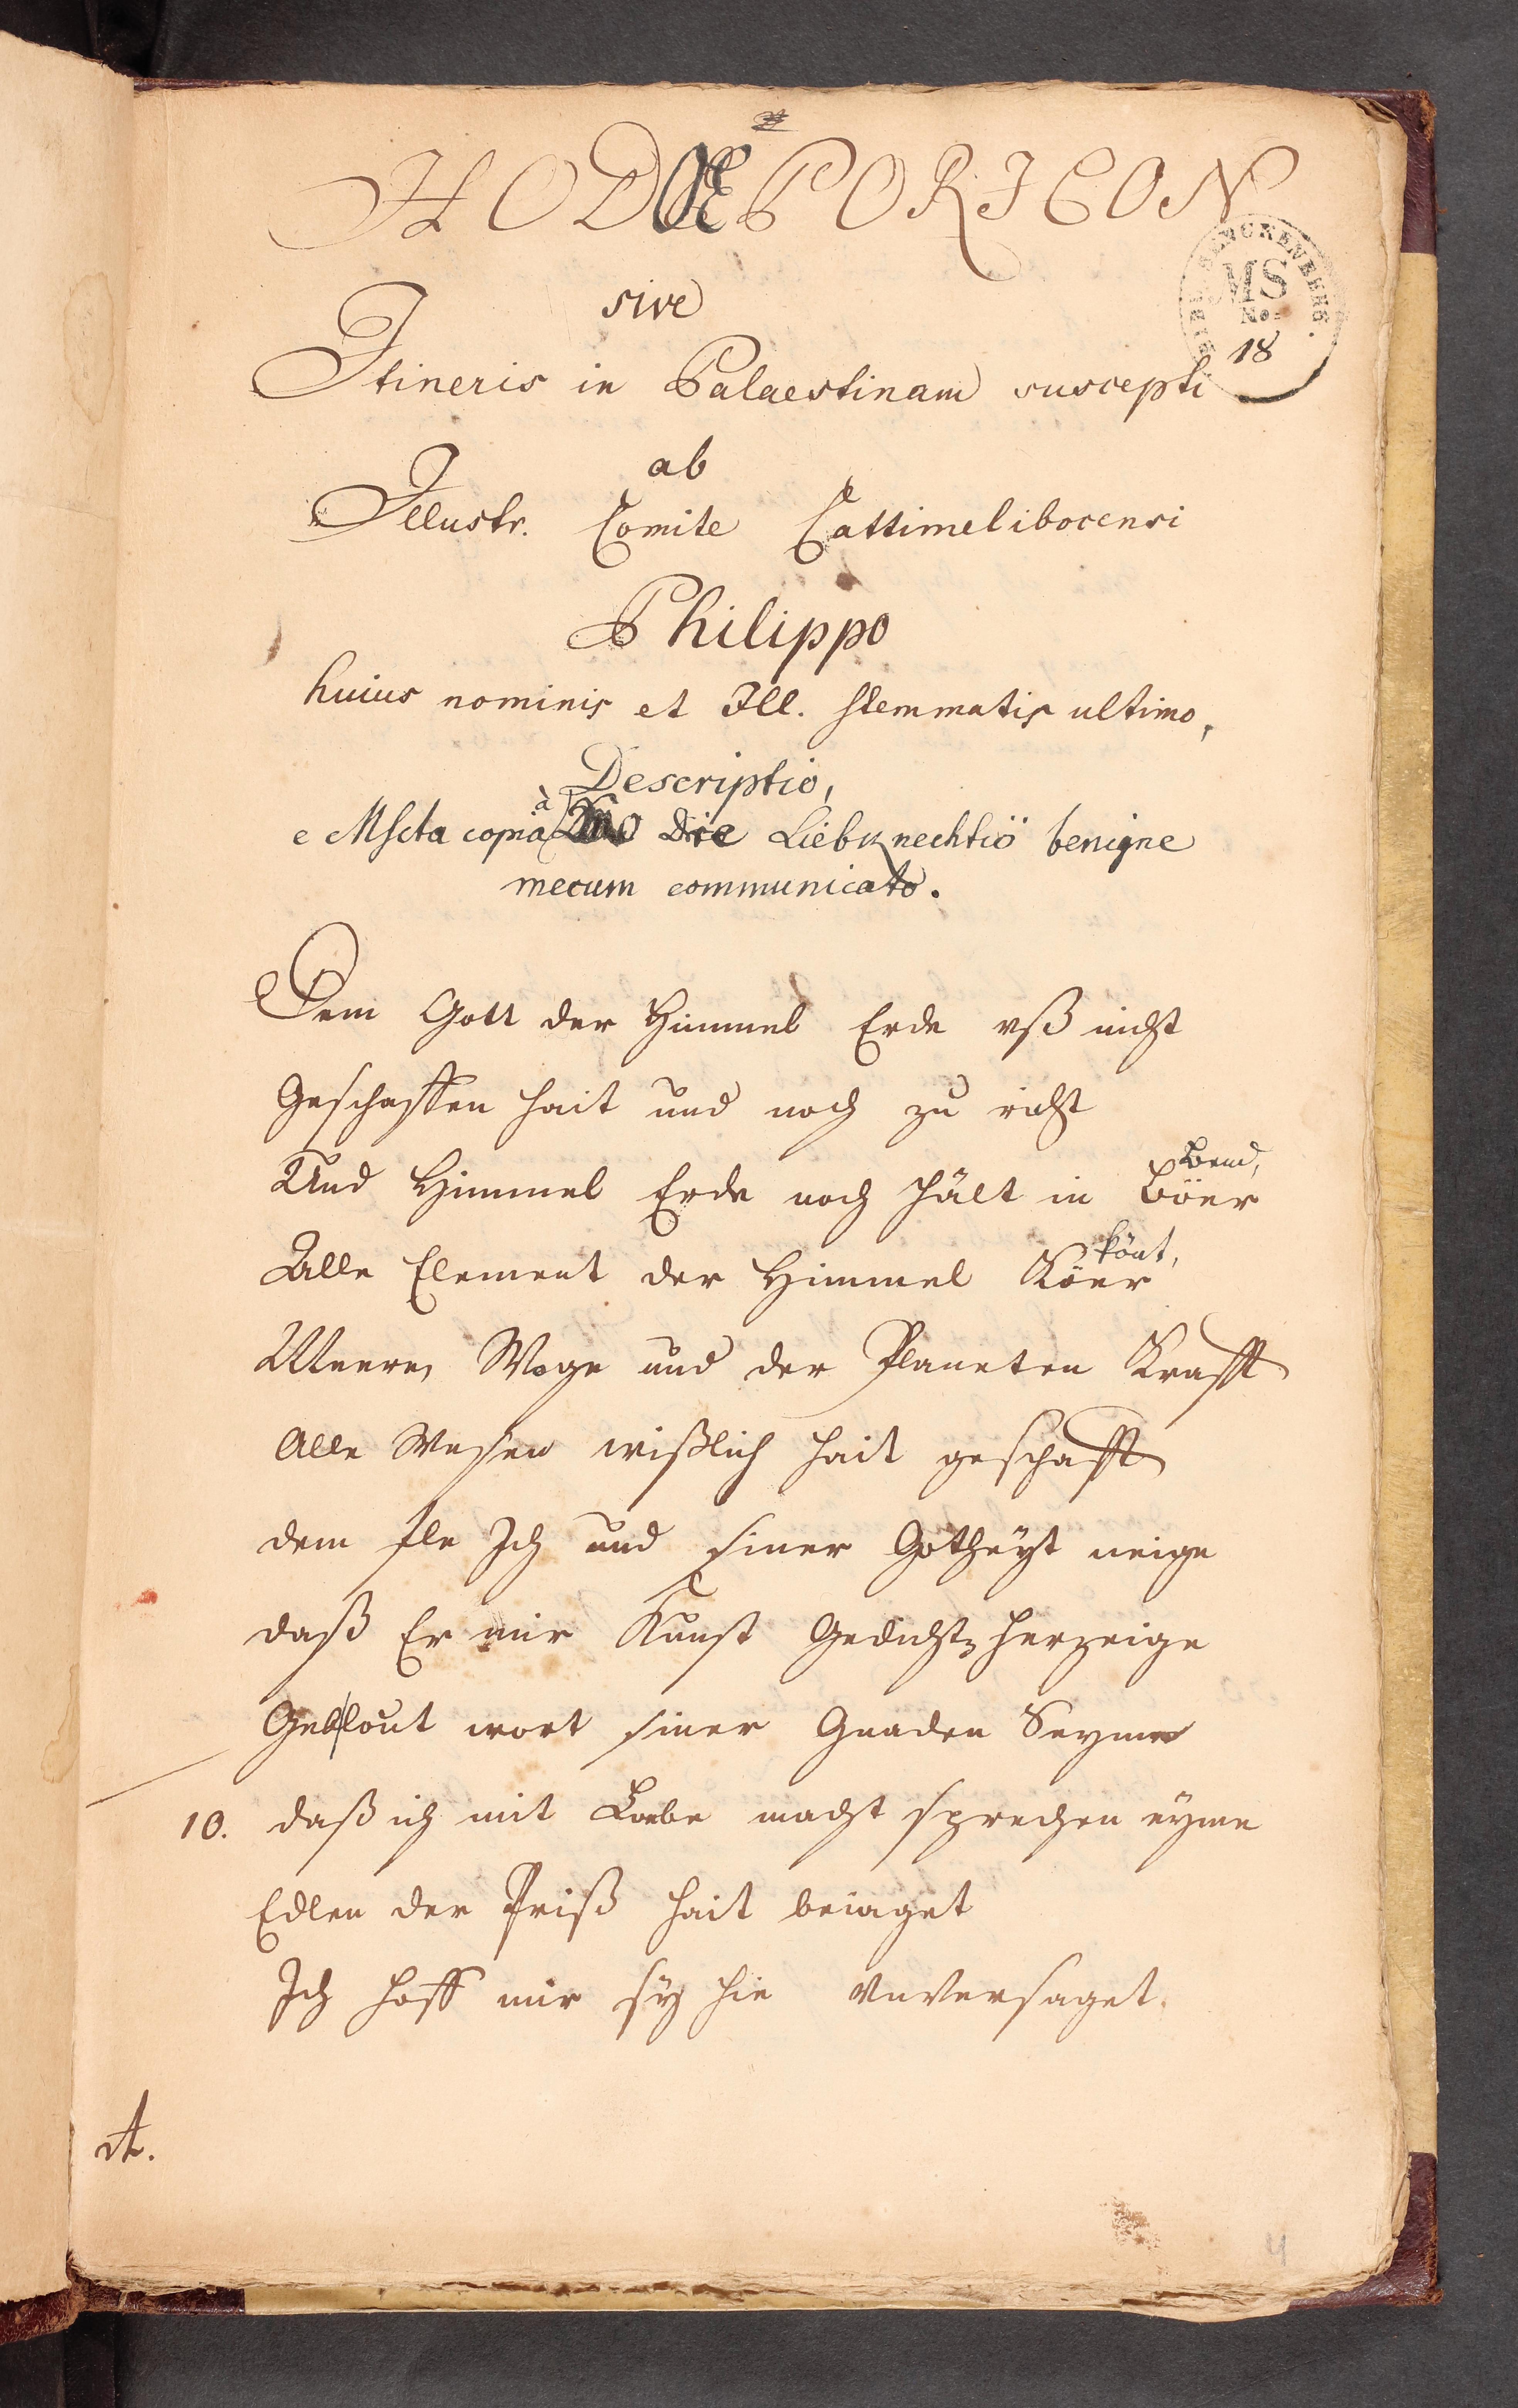 HODOEPORICON
sive
Itineris in Palaestinam suscepti
BIBL. SENCKENBERG.
MS
No.
18
ab
Illustr. Comite Cattimelibocensi
Philippo
huius nominis et Ill. stemmatis ultimo,
Descriptio,
e Mscta copia à Liebknechtio benigne
mecum communicato.
Dem Gott der Himmel Erde uß nicht
Geschaffen hait und noch zu richt
Und Himmel Erde noch hält in Böer Bend,
Alle Element der Himmel Köer könt,
Meeres Woge und der Planeten Krafft
Alle Wesen wißlich hait geschafft
dem fle Ich und siner Gotheyt neige
daß Er mir Kunst Gedichtz herzeige
wort siner Gnaden Seyme
10. daß ich mit Loebe macht sprechen eyme
Edlen der Priß hait beiaget
Ich hoff mir sy hie vnversaget.
A.
4